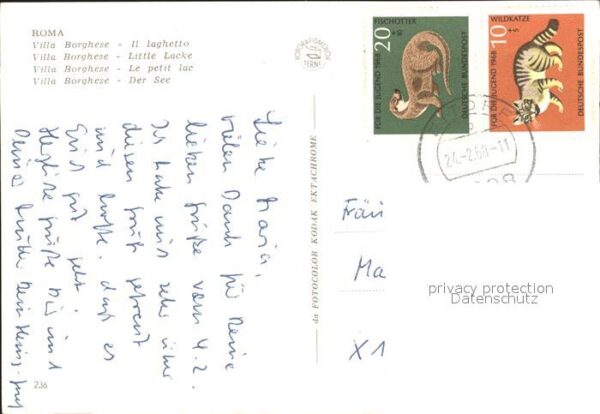 ROMA
Villa Borghese - Il laghetto
Villa Borghese - Little Lacke
Villa Borghese - Le petit lac
Villa Borghese - Der See
Liebe Maria,
vielen Dank für Deine
lieben Grüße vom 4.2.
Ich habe mich sehr über
diesen Gruß gefreut
und hoffe, daß es
Euch gut geht.
Herzliche Grüße Dir und
Deiner Mutter Dein Heinz-
236
da FOTOCOLOR KODAK EKTACHROME
TERNI
FISCHOTTER
20
+10
FÜR DIE JUGEND 1968
DEUTSCHE BUNDESPOST
WILDKATZE
10
+5
FÜR DIE JUGEND 1968
DEUTSCHE BUNDESPOST
24.-2.68-11
Fräu
Ma
X1
privacy protection
Datenschutz